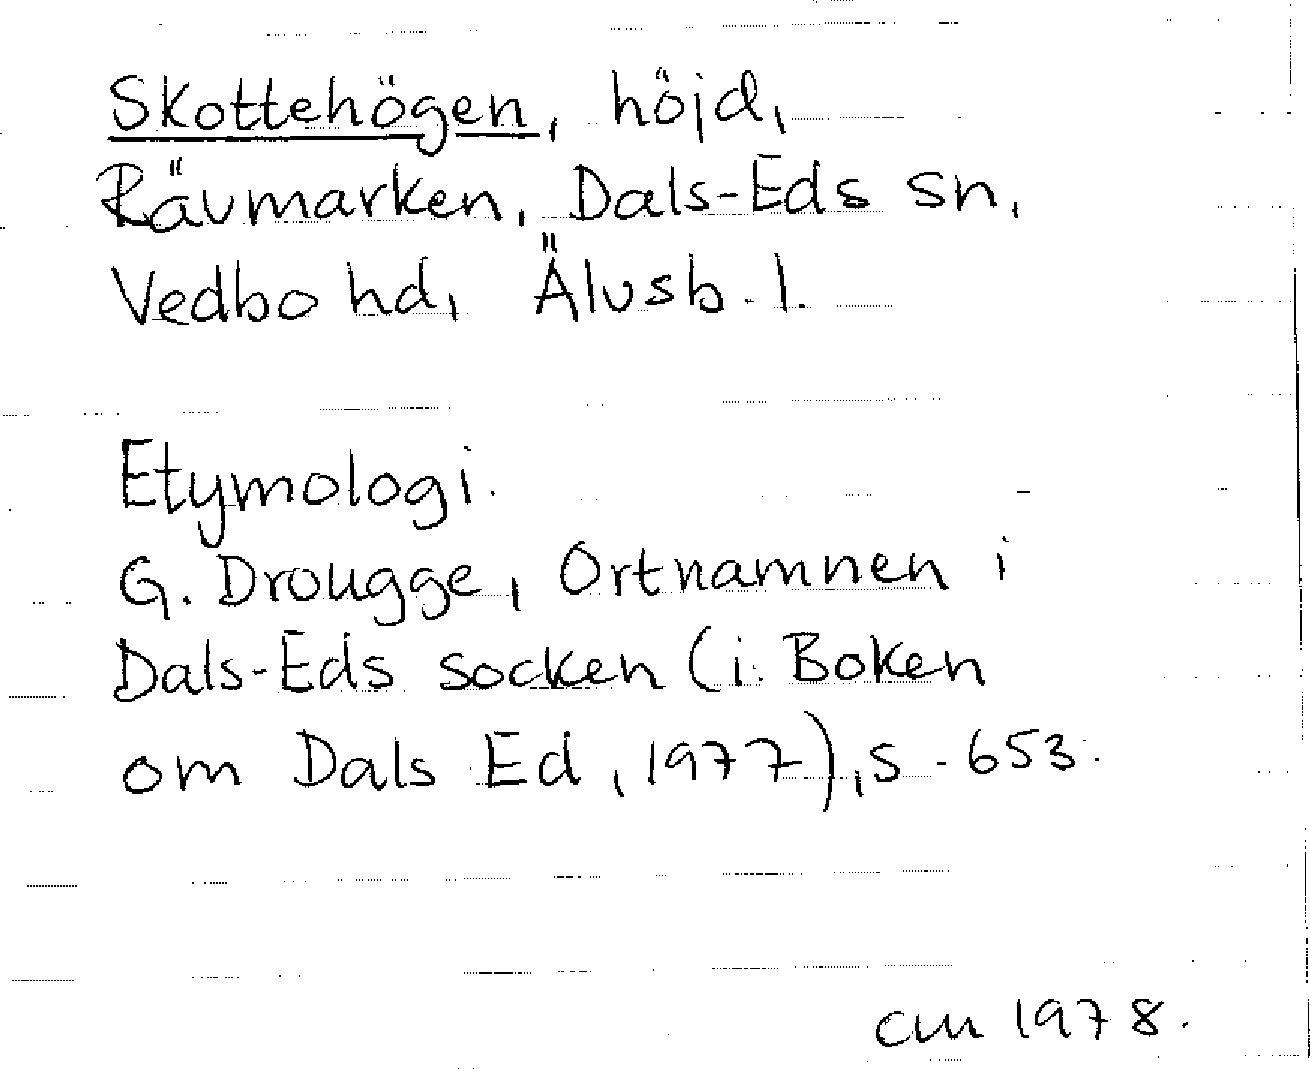 Skottehögen, höjd,
Rävmarken, Dals-Eds sn,
Vedbo hd, Älvsb. l.
Etymologi.
G. Drougge, Ortnamnen i
Dals-Eds socken (i: Boken
om Dals Ed, 1977), s. 653.
CM 1978.